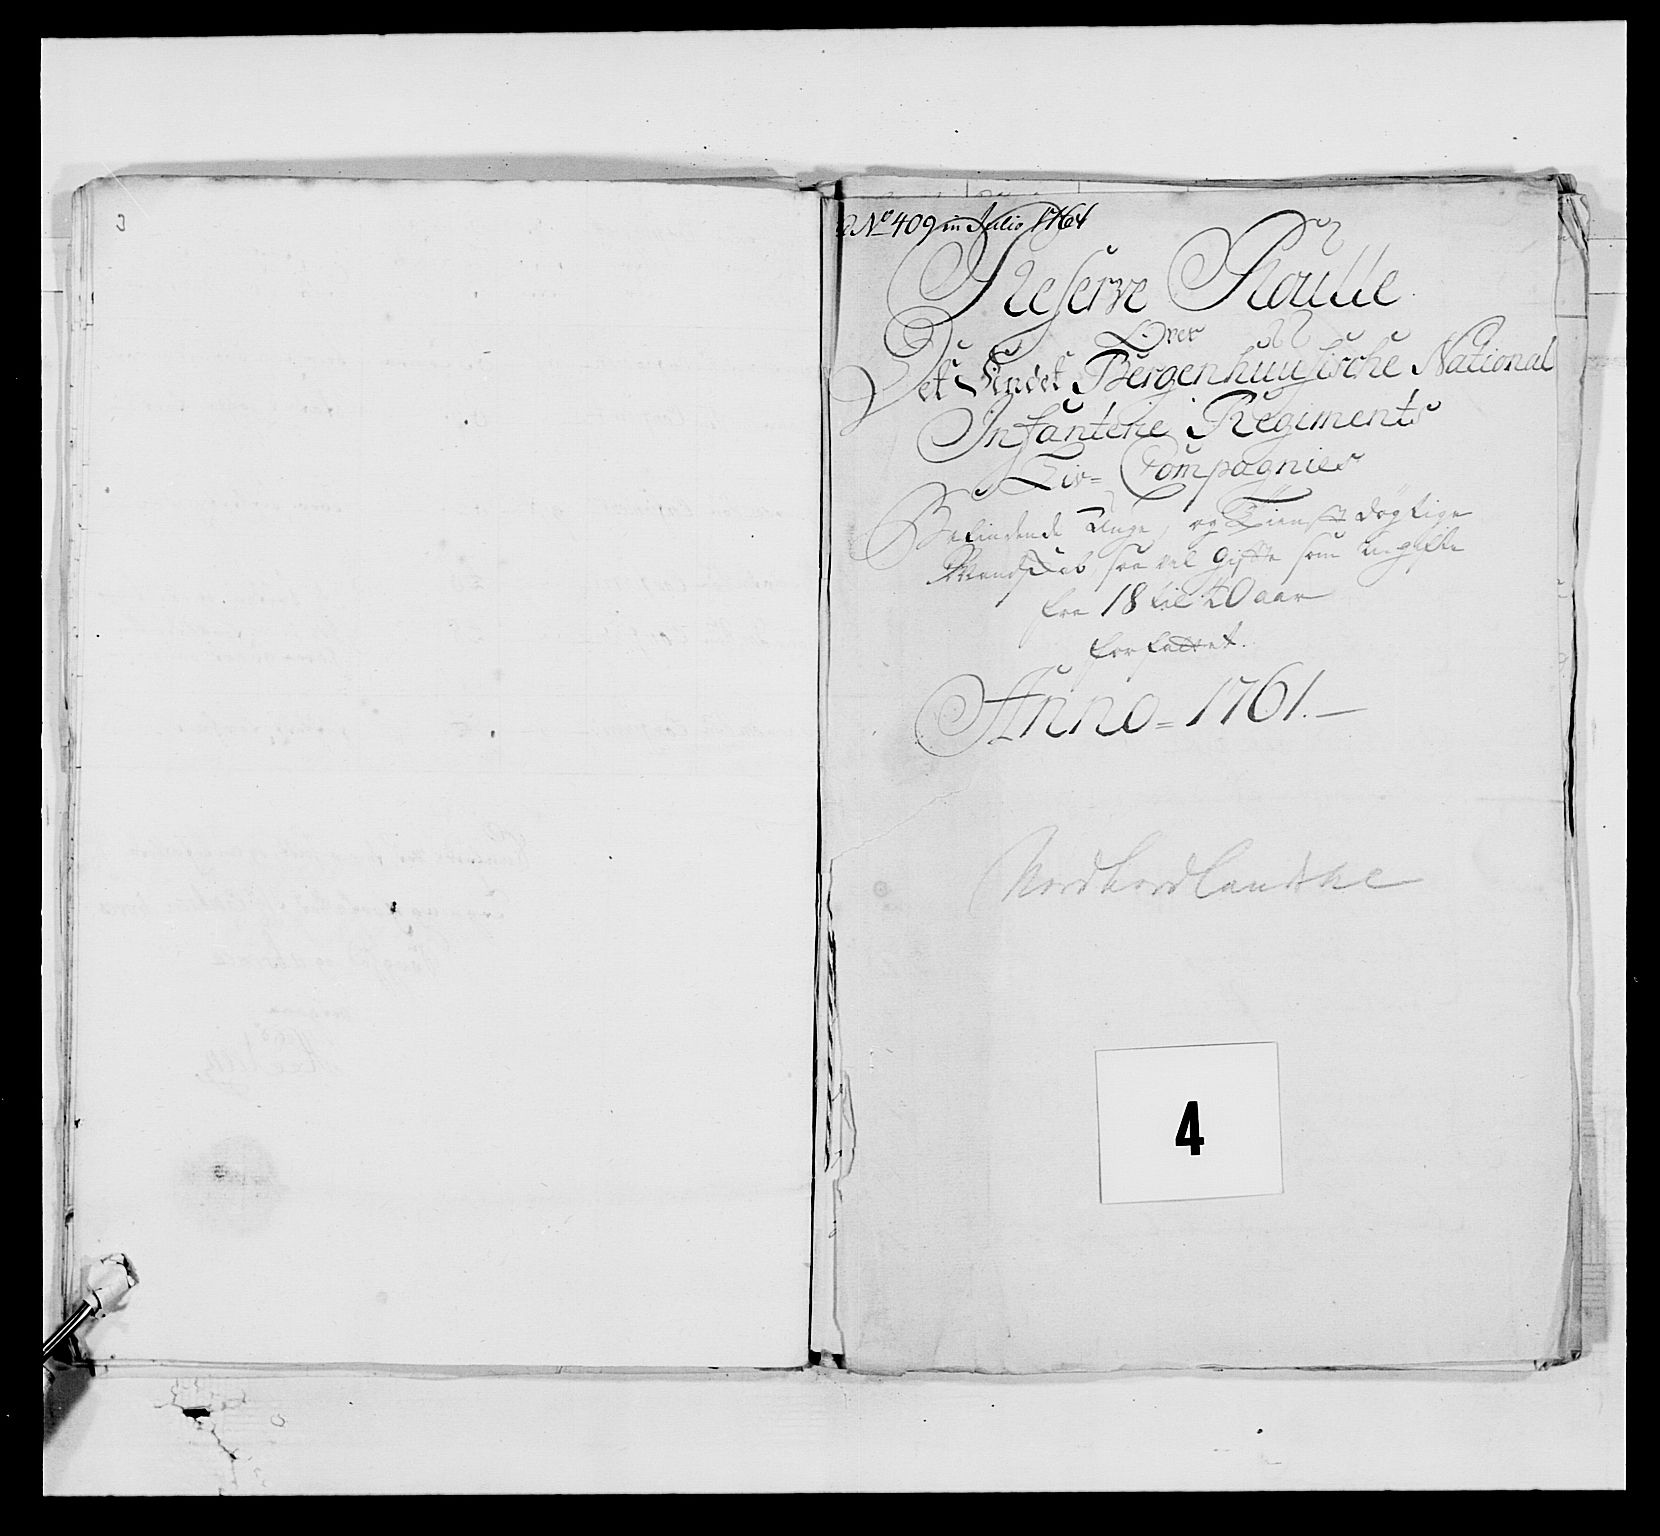 No 409 in Julio 1764
Reserve Roulle
Over
Det Andet Bergenhuusische National
Infanterie Regiments
Liv= Compagnies
Befindende Unge, og Tienst døgtige
Mandskab saa vel gifte som ugifte
fra 18 til 40 aar
forfattet.
Anno= 1761.
Nordhordlandske
4